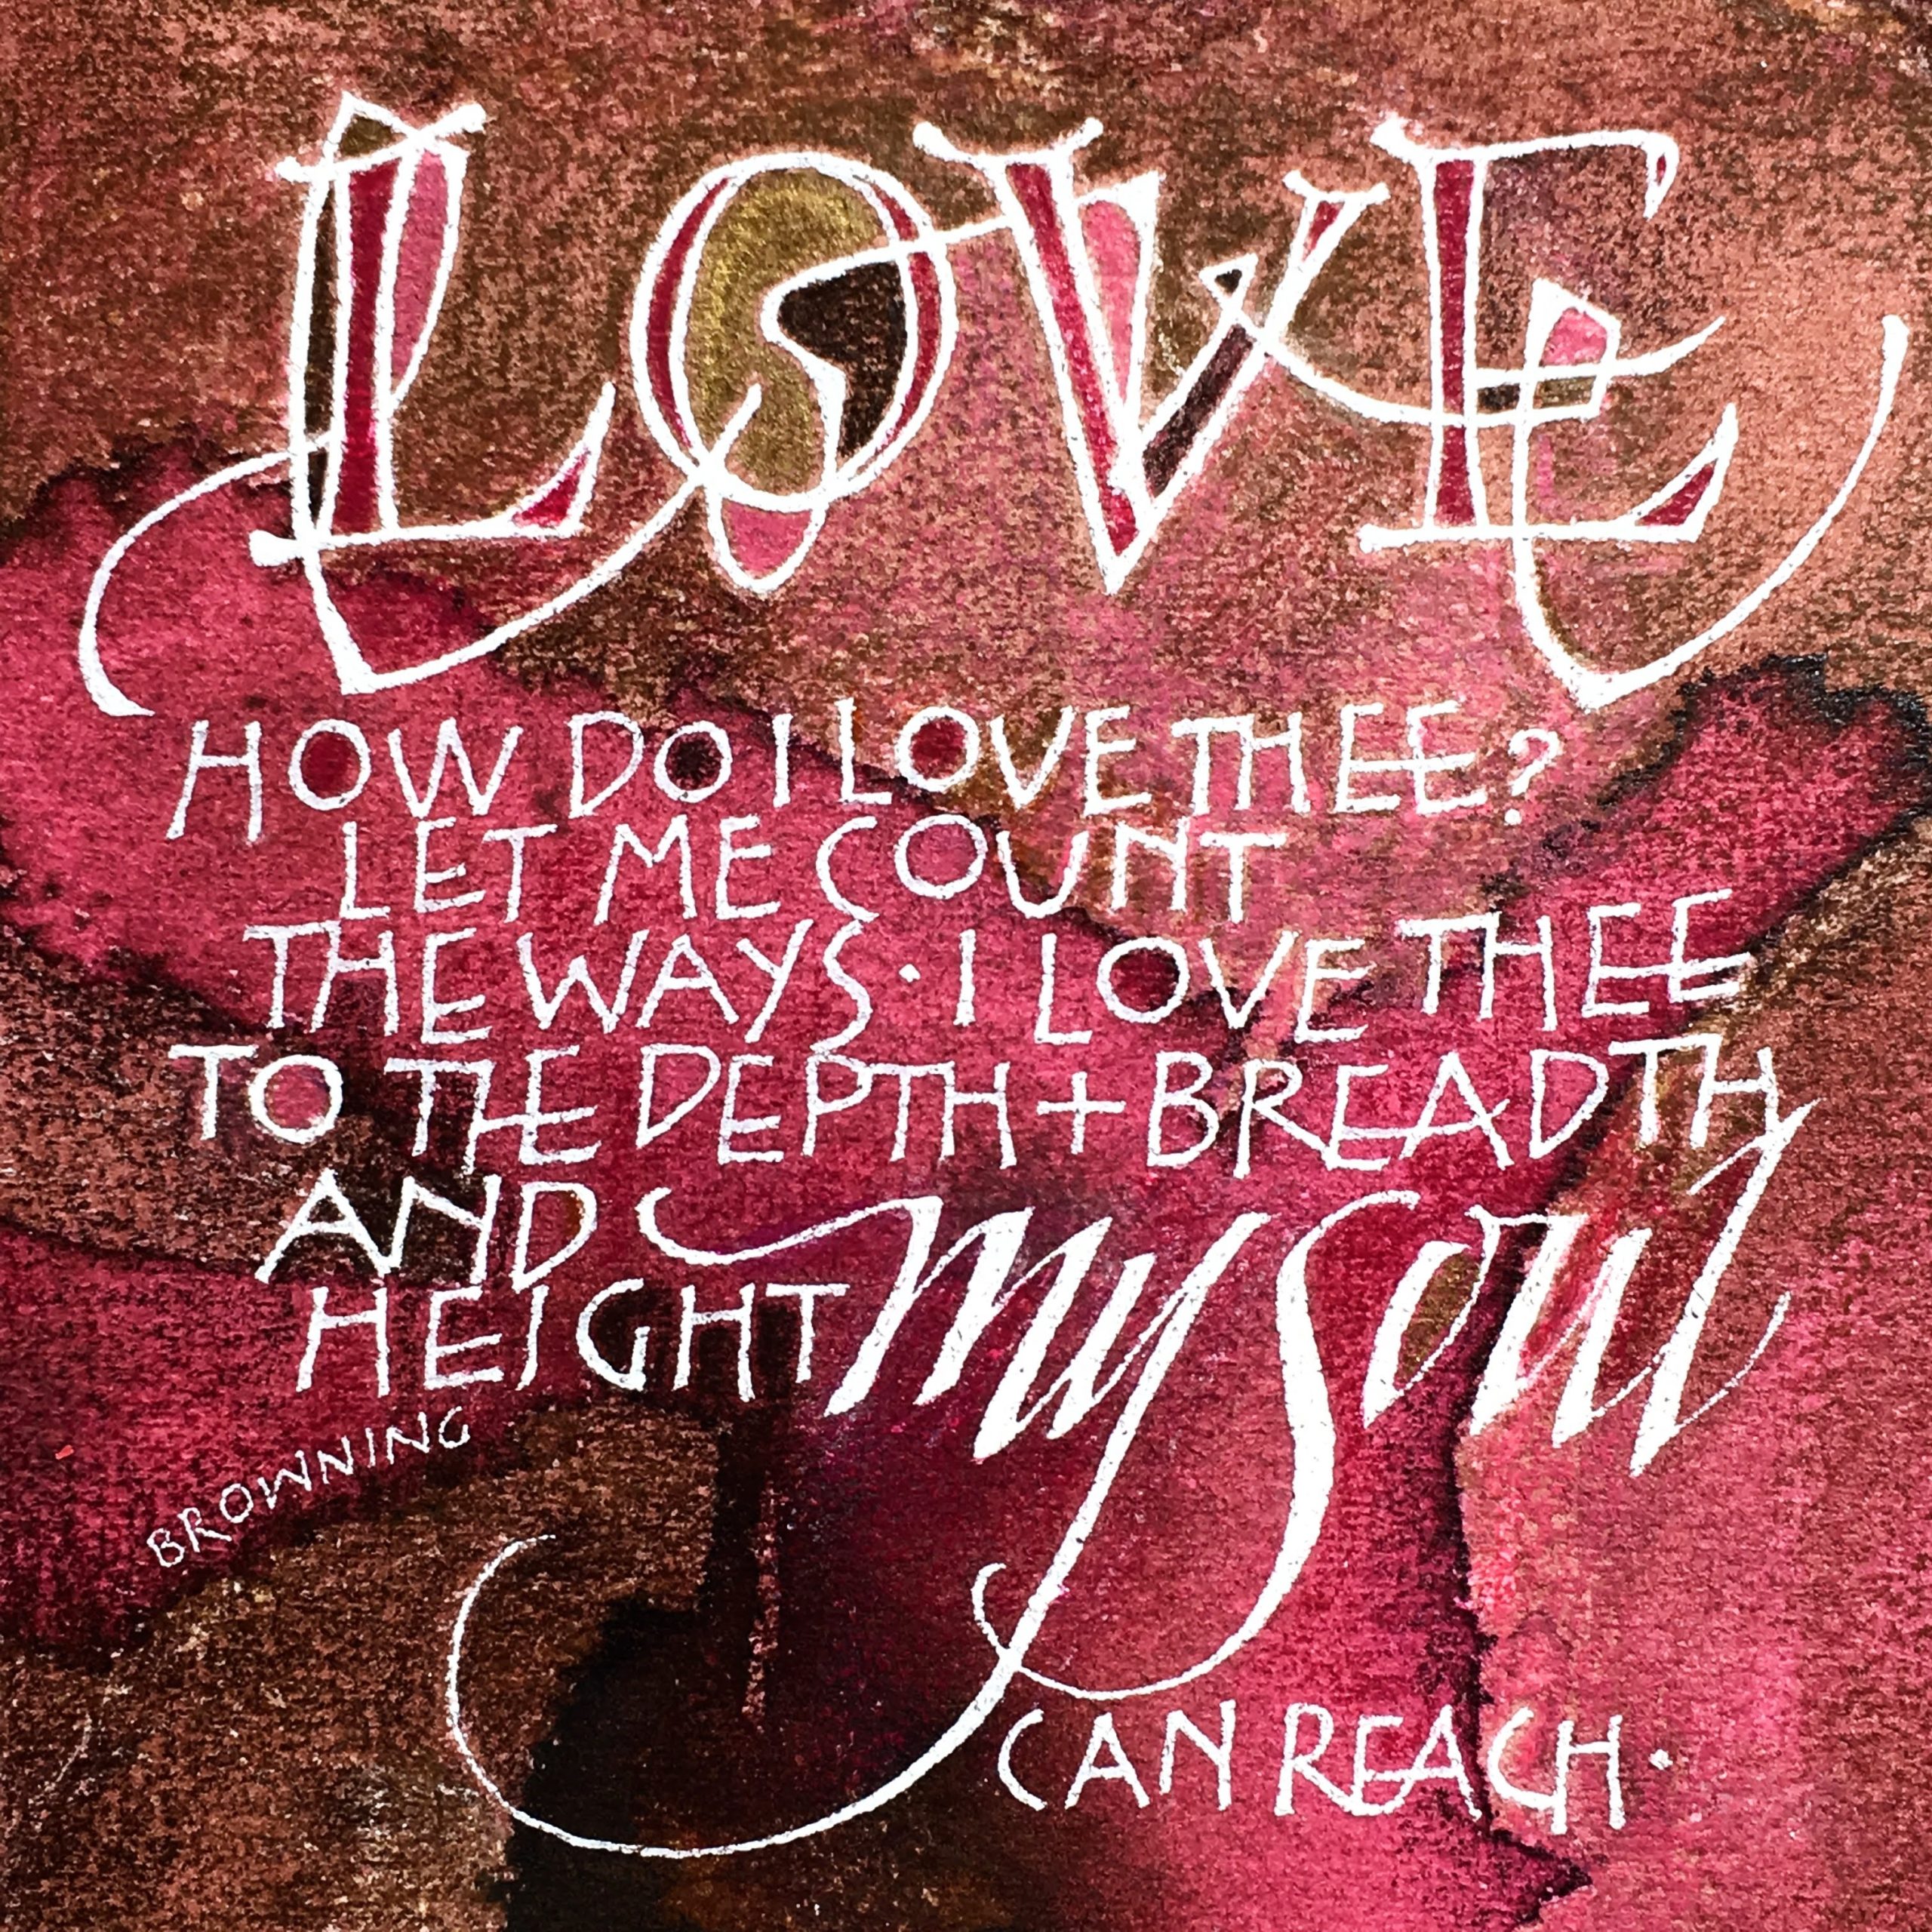 LOVE
HOW DO I LOVE THEE?
LET ME COUNT
THE WAYS · I LOVE THEE
TO THE DEPTH + BREADTH
AND my Soul
HEIGHT
BROWNING
CAN REACH ·